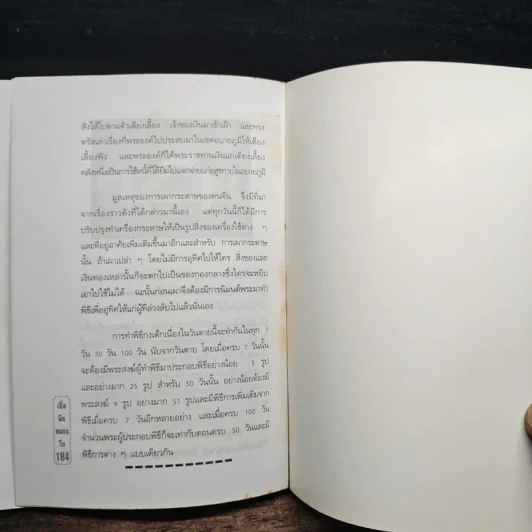 สั่งให้ไปตามตัวเตียงเลี้ยง เจ้าของเงินมาเข้าเฝ้า และทรง
ตรัสเล่าเรื่องที่พระองค์ไปประสบมาในเขตอบายภูมิให้เตียง
เลี้ยงฟัง ราวและพระองค์ก็ได้พระราชทานเงินแก่เตียงเลี้ยง
คลังหนึ่งเป็นการใช้หนี้ที่ได้ยืมไปแจกจ่ายแก่อสุรกายในอบายภูมิ
มูลเหตุของการเผากระดาษของคนจีน จึงมีที่มา
จากเรื่องราวดังที่ได้กล่าวมานี้เอง แต่ทุกวันนี้ก็ได้มีการ
ปรับปรุงทำเครื่องกระดาษให้เป็นรูปสิ่งของเครื่องใช้ต่าง ๆ
และที่อยู่อาศัยเพิ่มเติมขึ้นมาอีกและสำหรับ การเผากระดาษ
นั้น ถ้าเผาเปล่า ๆ โดยไม่มีการอุทิศไปให้ใคร สิ่งของและ
เงินทองเหล่านั้นก็จะตกไปเป็นของกองกลางซึ่งใครจะหยิบ
เอาไปใช้ไม่ได้ ฉะนั้นก่อนเผาจึงต้องมีการนิมนต์พระมาทำ
พิธีเพื่ออุทิศให้แก่ผู้ที่ล่วงลับไปแล้วนั่นเอง
การทำพิธีกงเต๊กเนื่องในวันตายนี้จะทำกันในทุก 7
วัน 50 วัน 100 วัน นับจากวันตาย โดยเมื่อครบ 7 วันนั้น
จะต้องมีพระสงฆ์ผู้ทำพิธีมาประกอบพิธีอย่างน้อย 5 รูป
และอย่างมาก 25 รูป สำหรับ 50 วันนั้น อย่างน้อยต้องมี
พระสงฆ์ 9 รูป อย่างมาก 51 รูปและมีพิธีการเพิ่มเติมจาก
พิธีเมื่อครบ 7 วันอีกหลายอย่าง และเมื่อครบ 100 วัน
จำนวนพระผู้ประกอบพิธีก็จะเท่ากับตอนครบ 50 วันและมี
พิธีการต่าง ๆ แบบเดียวกัน
184